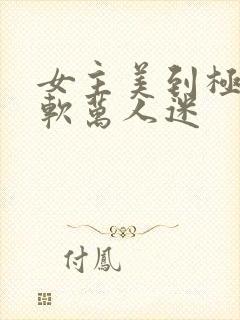 女主美到極
軟萬人迷
付鳳